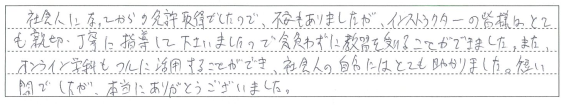 社会人になってからの免許取得でしたので、不安もありましたが、インストラクターの皆様はとて
も親切、丁寧に指導して下さいましたので気負わずに教習を受けることができました。また、
オンライン学科もフルに活用することができ、社会人の自分にはとても助かりました。短い
間でしたが、本当にありがとうございました。